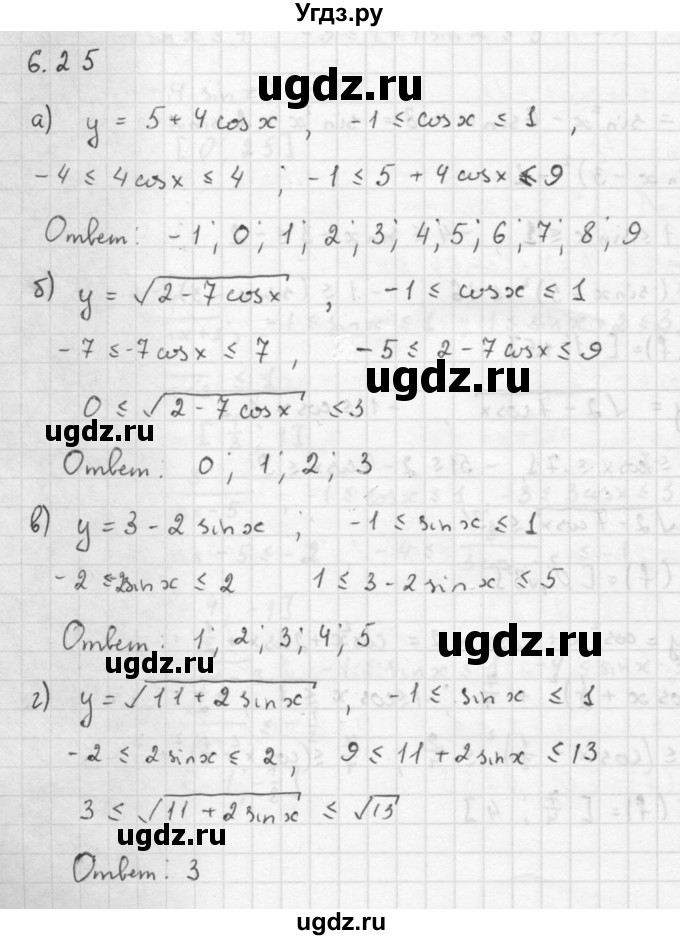 Угдз.ру
6.25
ugdz.ru
а) y = 5 + 4 cos x , -1 ≤ cos x ≤ 1 ,
-4 ≤ 4 cos x ≤ 4 ; -1 ≤ 5 + 4 cos x ≤ 9
Ответ: -1; 0; 1; 2; 3; 4; 5; 6; 7; 8; 9
ugdz.ru
б) y = √(2 - 7 cos x) , -1 ≤ cos x ≤ 1
-7 ≤ -7 cos x ≤ 7 , -5 ≤ 2 - 7 cos x ≤ 9
ugdz.ru
0 ≤ √(2 - 7 cos x) ≤ 3
ugdz.ru
Ответ: 0; 1; 2; 3
в) y = 3 - 2 sin x ; -1 ≤ sin x ≤ 1
-2 ≤ 2 sin x ≤ 2 1 ≤ 3 - 2 sin x ≤ 5
Ответ: 1; 2; 3; 4; 5
ugdz.ru
ugdz.ru
г) y = √(11 + 2 sin x) , -1 ≤ sin x ≤ 1
-2 ≤ 2 sin x ≤ 2, 9 ≤ 11 + 2 sin x ≤ 13
3 ≤ √(11 + 2 sin x) ≤ √13
ugdz.ru
Ответ: 3
ugdz.ru